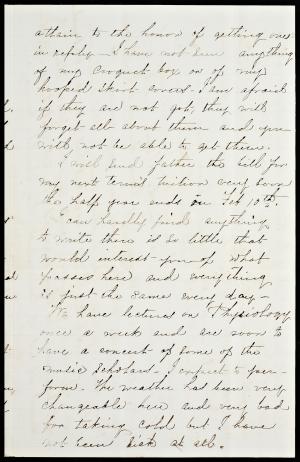 attain to the honor of getting one
in reply — I have not seen anything
of my Croquet box or of my
hooped skirt covers. I am afraid
if they are not got, they will
forget all about them and you
will not be able to get them.
I will send father the bill for
my next term's tuition very soon
the half year ends on Feb 10th.
I can hardly find anything
to write there is so little that
would interest you of what
passes here and everything
is just the same every day —
We have lectures on Physiology
once a week and are soon to
have a concert of some of the
music Scholars — I expect to per-
form. The weather has been very
changeable here and very bad
for taking cold but I have
not been sick at all.